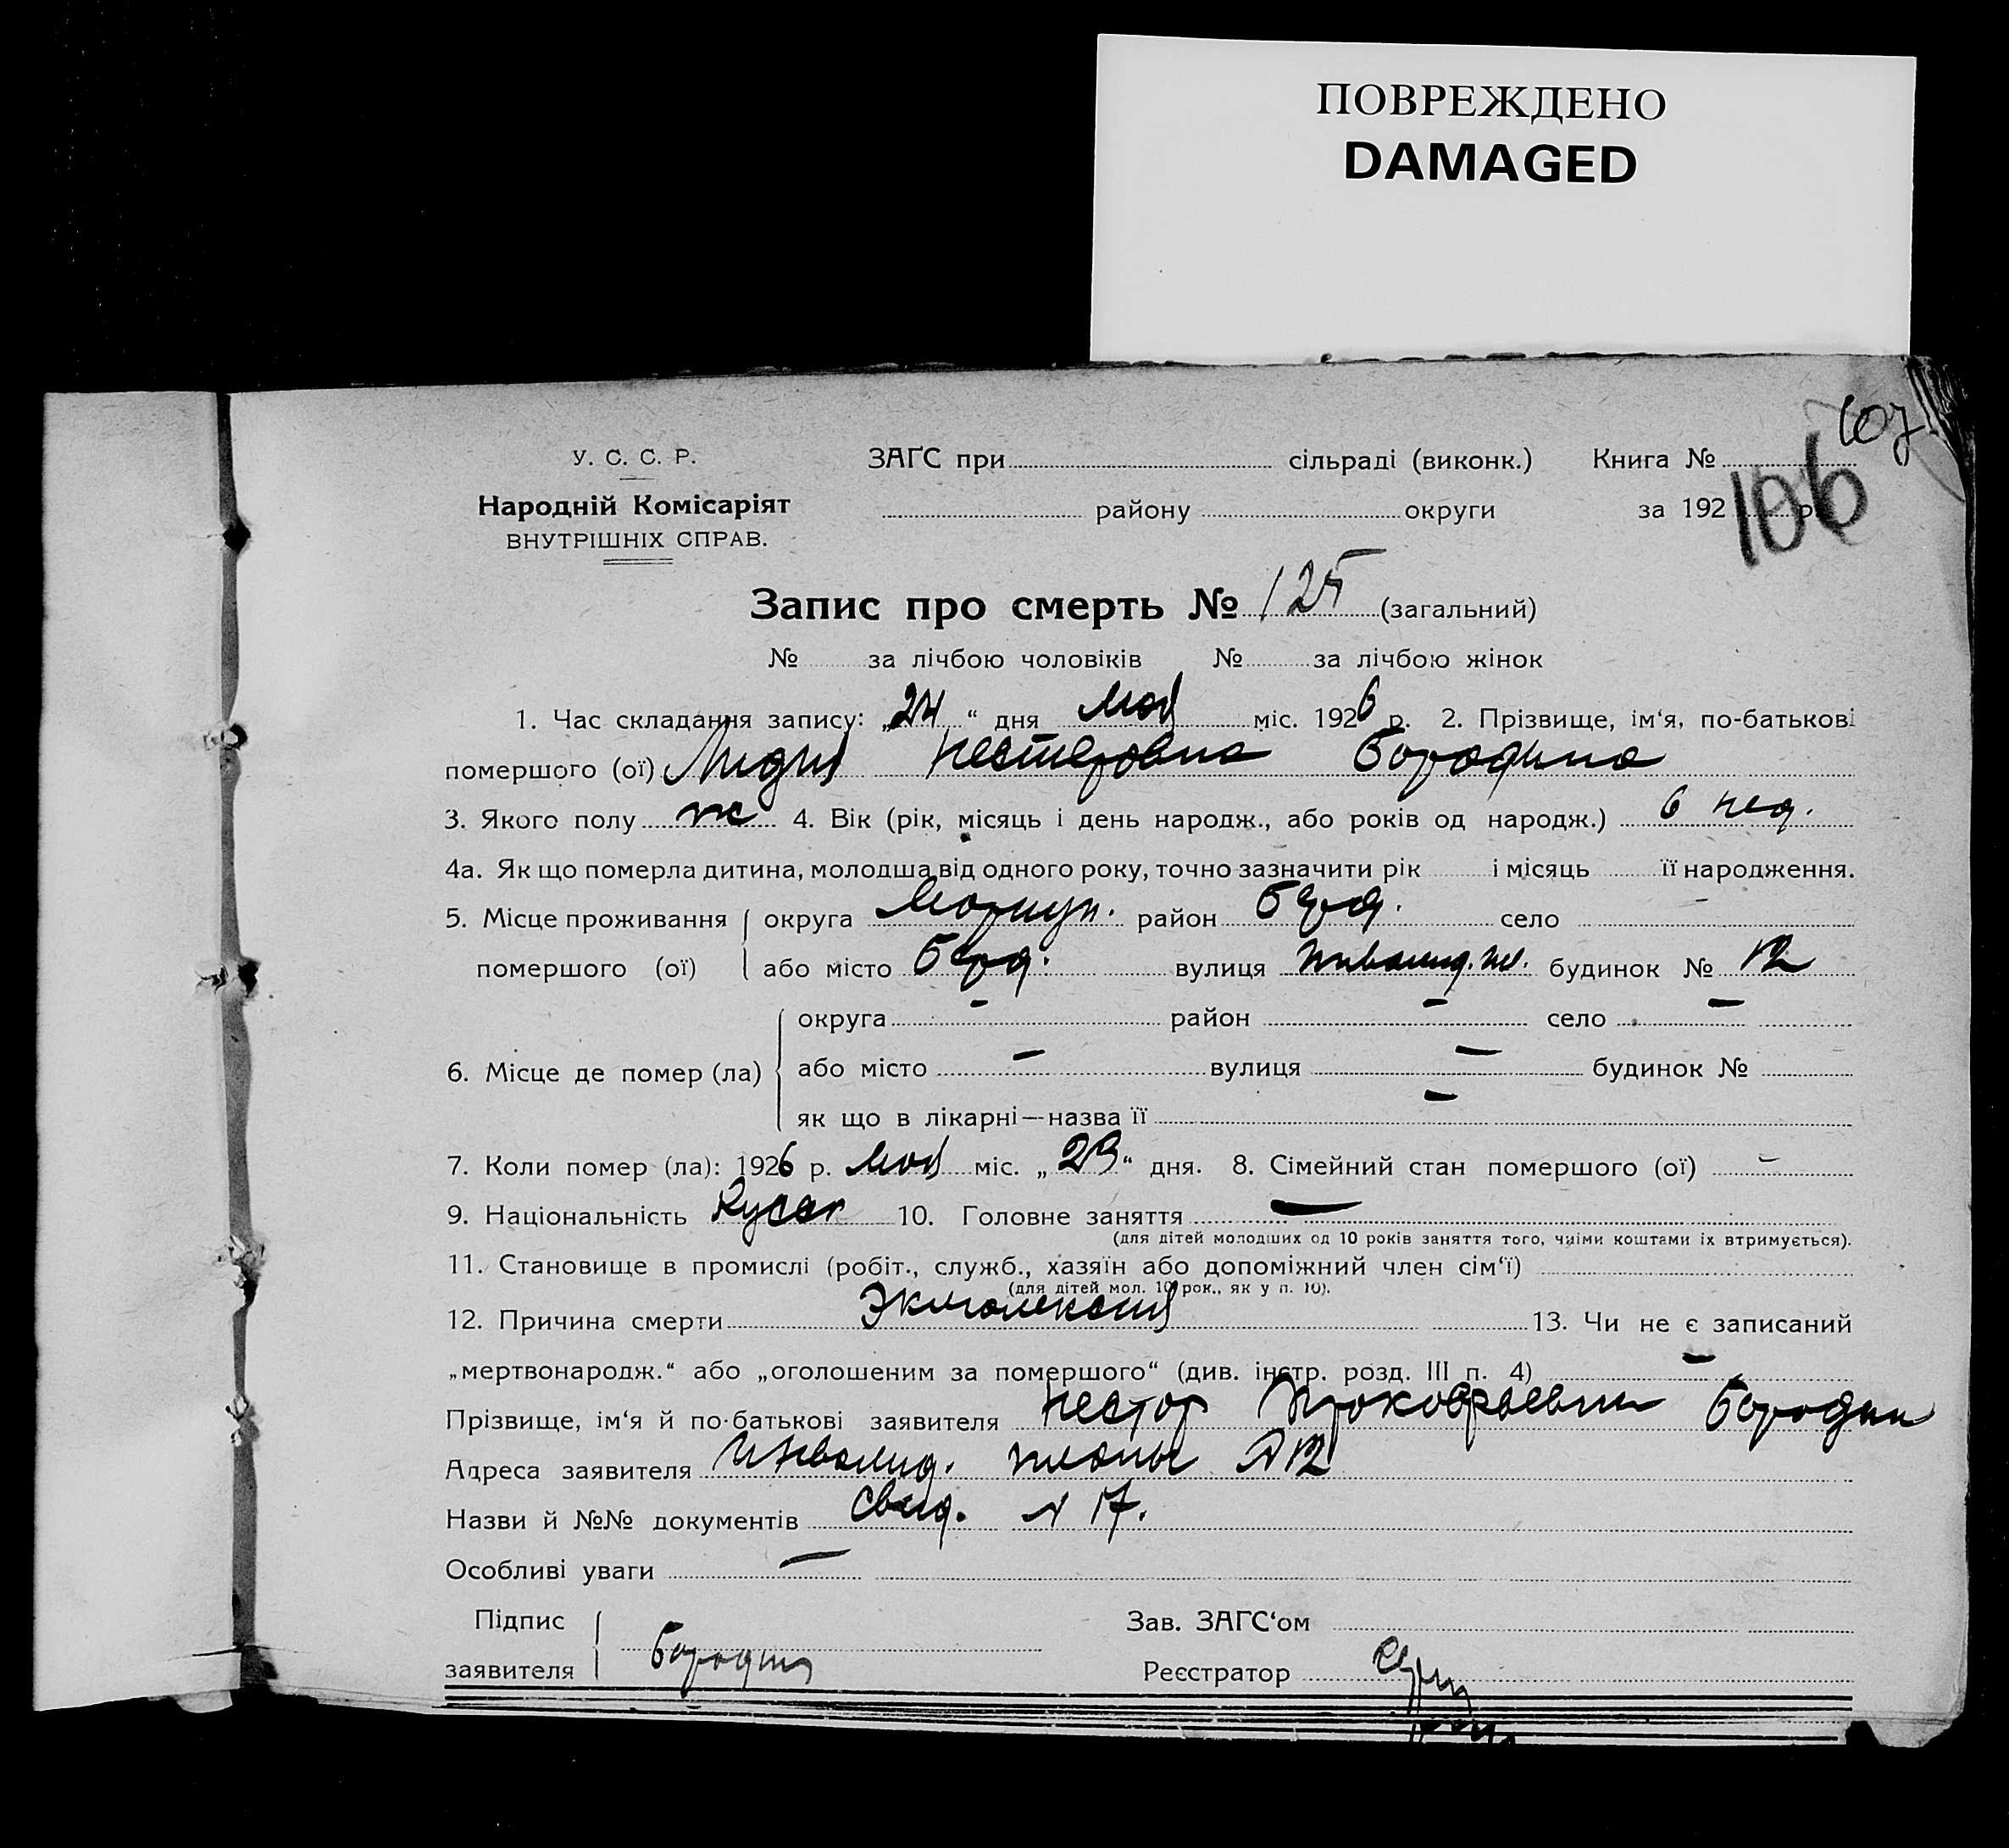 ПОВРЕЖДЕНО
DAMAGED
107
106
У. С. С. Р.
ЗАҐС при сільраді (виконк.) Книга №
Народній Комісаріят
району округи за 192 р.
ВНУТРІШНІХ СПРАВ.
Запис про смерть № 125 (загальний)
№ за лічбою чоловіків № за лічбою жінок
1. Час складання запису: „24“ дня мая міс. 1926 р. 2. Прізвище, ім‘я, по-батькові
помершого (ої) Лидия Нестеровна Бородина
3. Якого полу ж 4. Вік (рік, місяць і день народж., або років од народж.) 6 нед.
4а. Як що померла дитина, молодша від одного року, точно зазначити рік і місяць її народження.
5. Місце проживання округа Мариуп. район Берд. село –
помершого (ої) або місто Берд. вулиця Инвалид. пл. будинок № 12
округа – район – село –
6. Місце де помер (ла) або місто – вулиця – будинок №
як що в лікарні—назва її –
7. Коли помер (ла): 1926 р. мая міс. „23“ дня. 8. Сімейний стан помершого (ої) –
9. Національність 10. Головне заняття –
(для дітей молодших од 10 років заняття того, чиїми коштами їх втримується).
11. Становище в промислі (робіт., служб., хазяїн або допоміжний член сім‘ї)
(для дітей мол. 10 рок., як у п. 10).
12. Причина смерти 13. Чи не є записаний
„мертвонародж.“ або „оголошеним за помершого“ (див. інстр. розд. III п. 4) –
Прізвище, ім‘я й по-батькові заявителя Нестор Бородин
Адреса заявителя Инвалид. №12
Назви й №№ документів свид. № 17.
Особливі уваги –
Підпис Зав. ЗАГС‘ом
заявителя Бородин Реєстратор